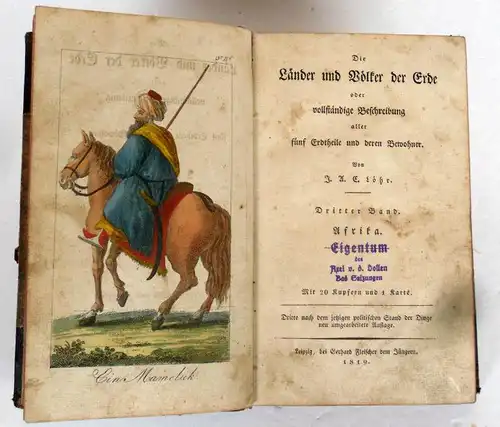 Ein Mameluk
Die
Länder und Völker der Erde
oder
vollständige Beschreibung
aller
fünf Erdtheile und deren Bewohner.
Von
J. A. C. Löhr.
Dritter Band.
Afrika.
Eigentum
des
Axel v. d. Dollen
Bad Salzungen
Mit 20 Kupfern und 1 Karte.
Dritte nach dem jetzigen politischen Stand der Dinge
neu umgearbeitete Auflage.
Leipzig, bei Gerhard Fleischer dem Jüngern.
1819.